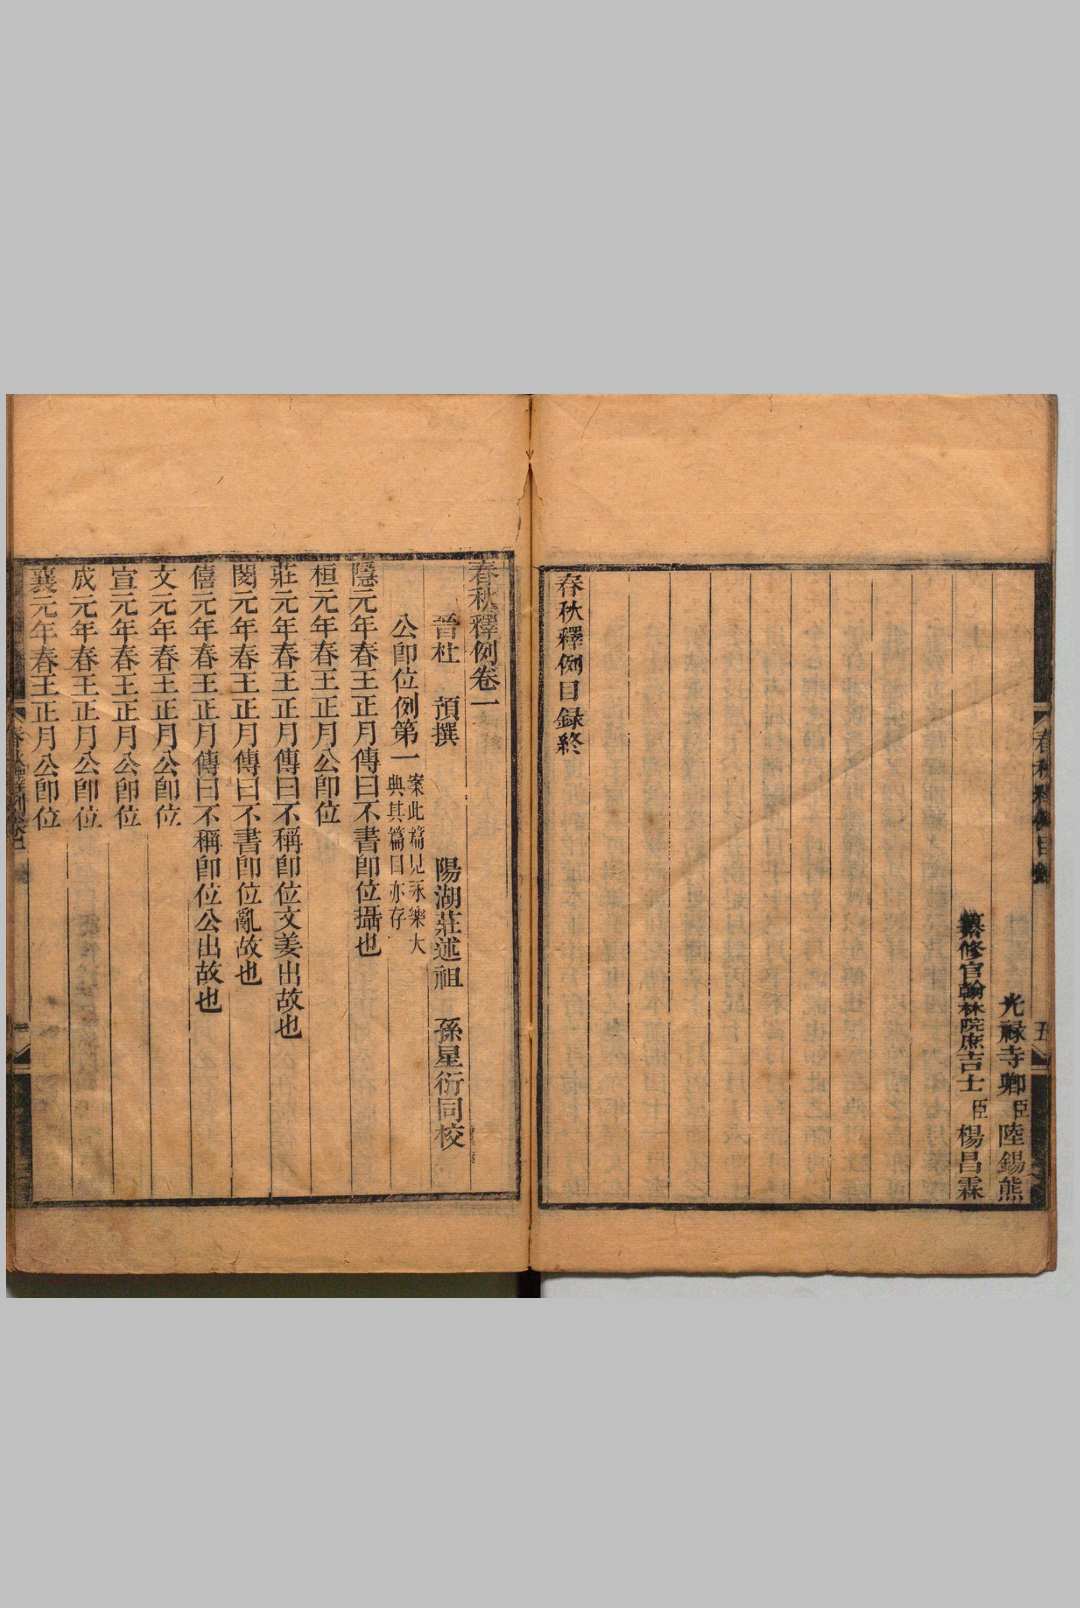 春秋釋例目錄
五
光祿寺卿臣陸錫熊
纂修官翰林院庶吉士臣楊昌霖
春秋釋例目錄終
春秋釋例卷一
晉杜預撰 陽湖莊述祖 孫星衍同校
公卽位例第一 案此篇見永樂大
典其篇目亦存
隱元年春王正月傳曰不書卽位攝也
桓元年春王正月公卽位
莊元年春王正月傳曰不稱卽位文姜出故也
閔元年春王正月傳曰不書卽位亂故也
僖元年春王正月傳曰不稱卽位公出故也
文元年春王正月公卽位
宣元年春王正月公卽位
成元年春王正月公卽位
襄元年春王正月公卽位
春秋釋例卷一